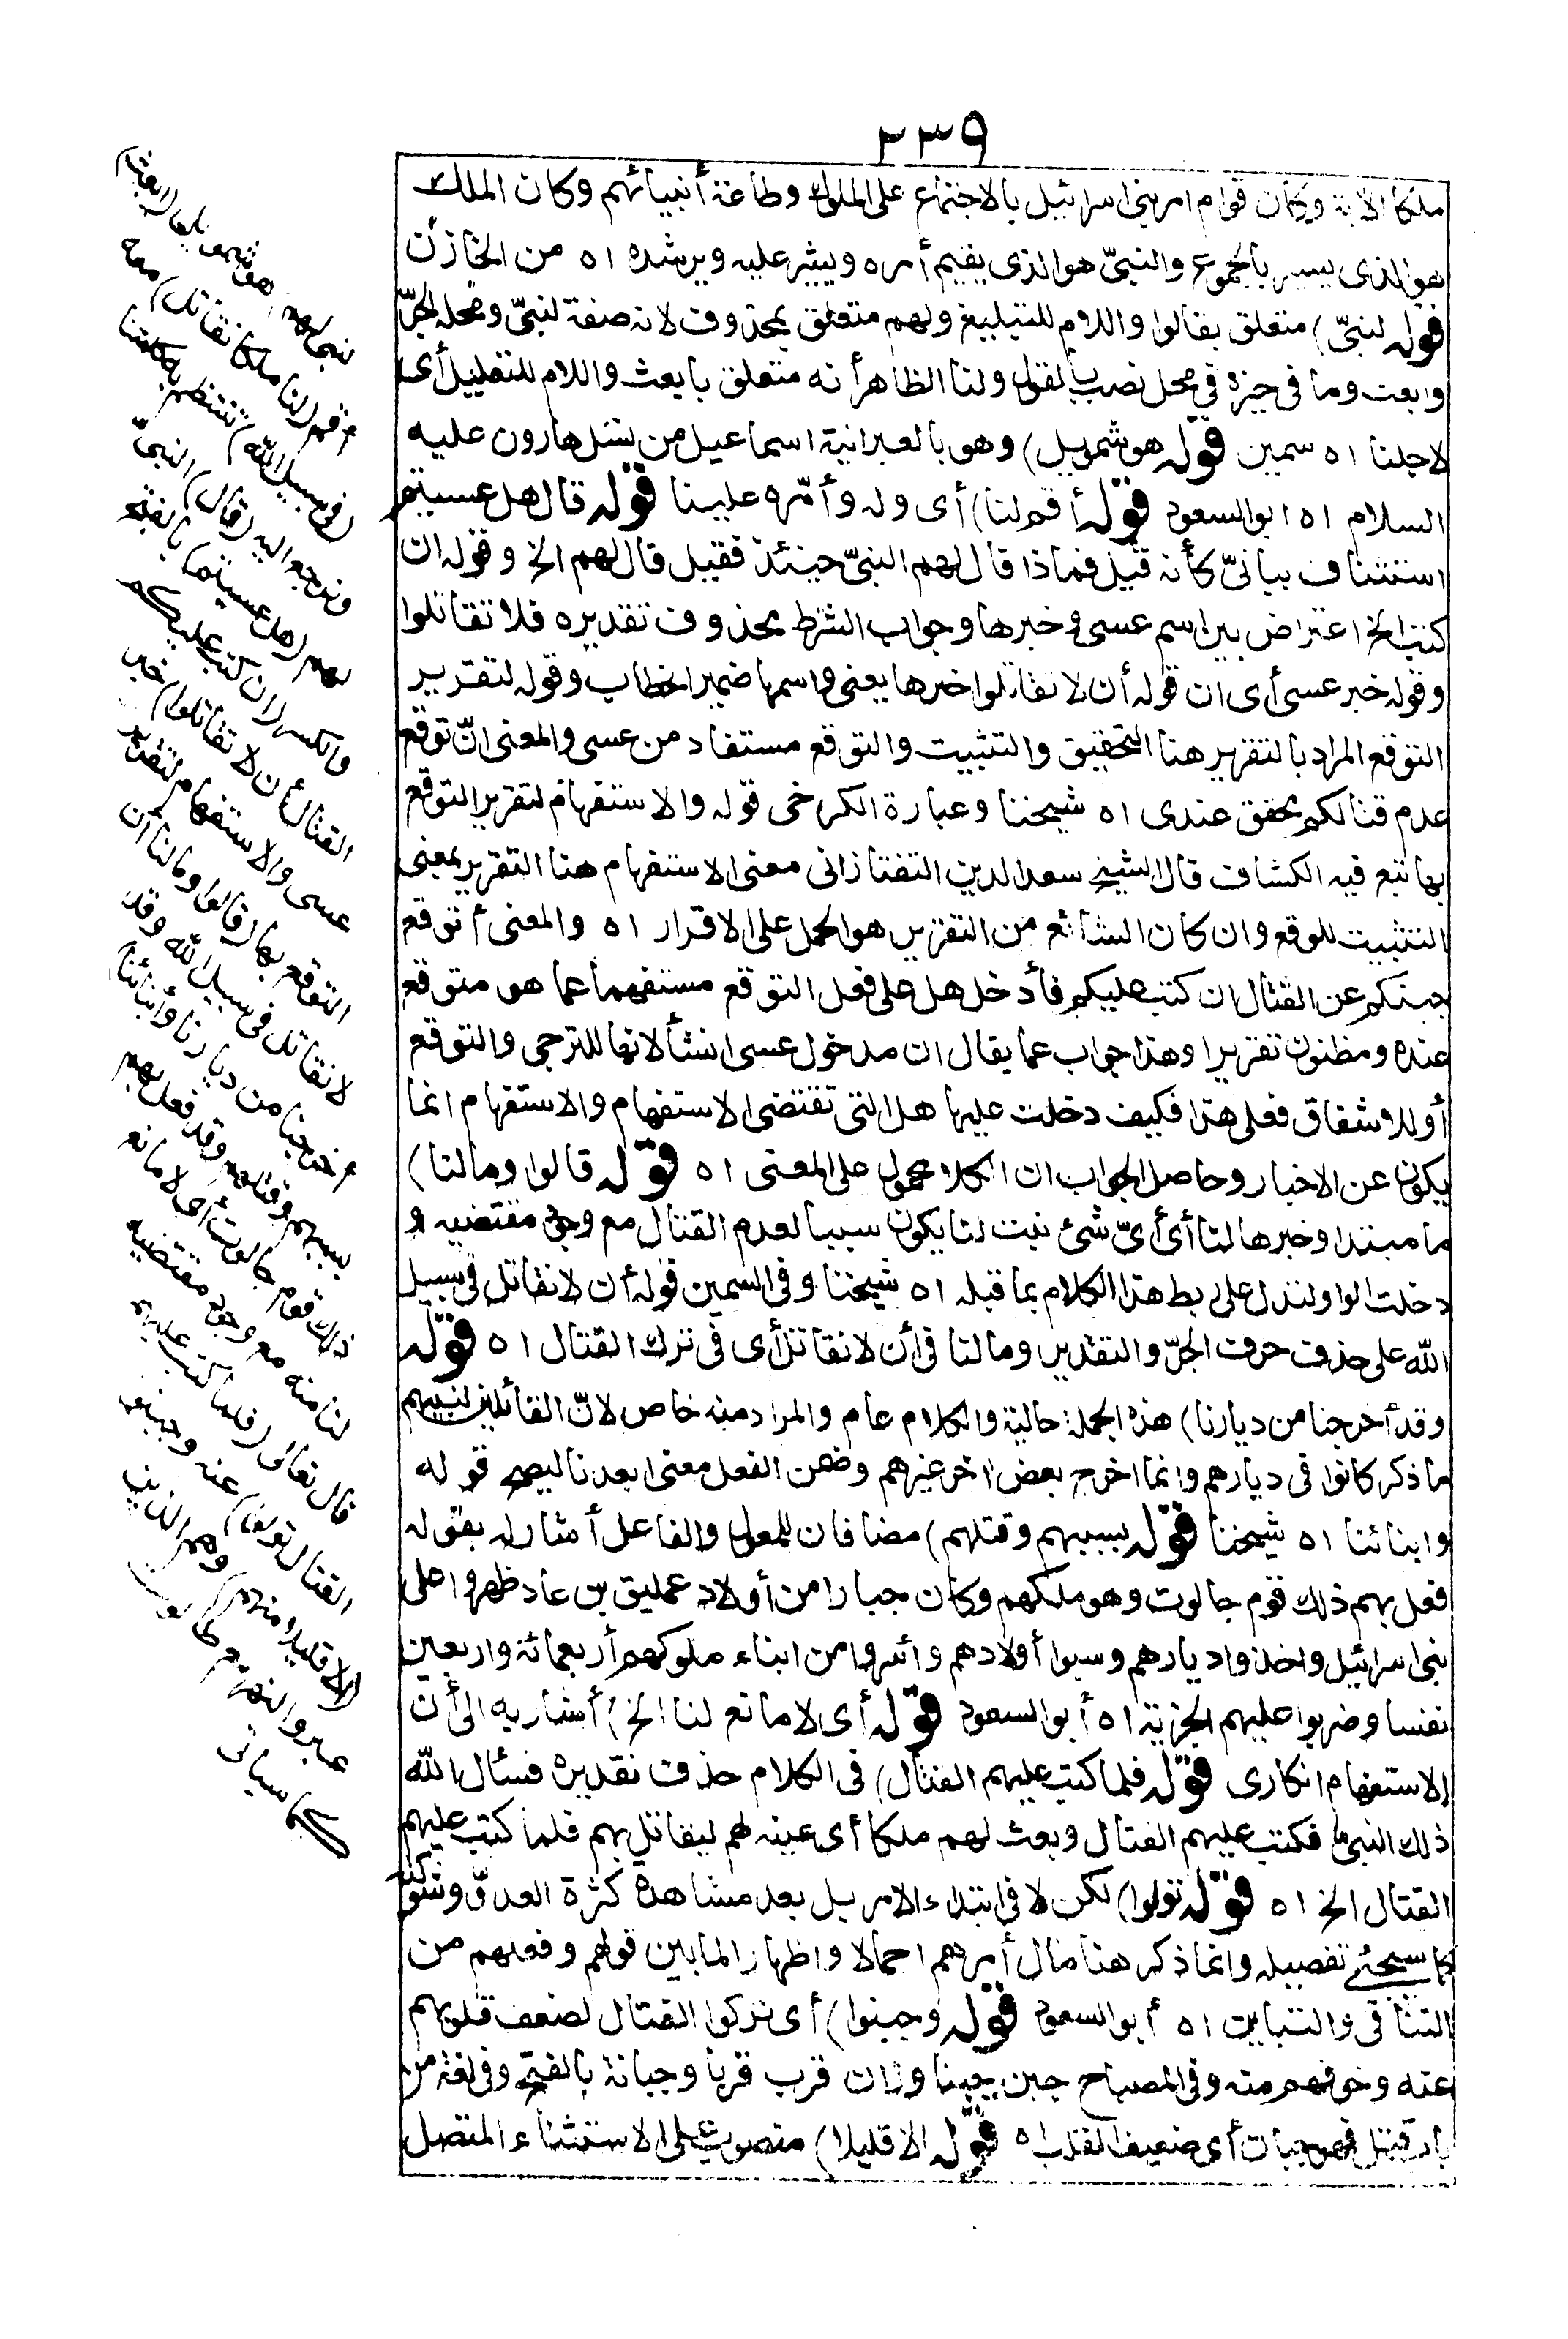 ٢٣٩
ملكا الآية وكان قوام امر بني اسرائيل بالاجتماع على الملوك وطاعة أنبيائهم وكان الملك
هو الذى يسير بالجموع والنبىّ هو الذى يقيم أمره ويشير عليه ويرشده اه من الخازن
قوله لنبىّ) متعلق بقالوا واللام للتبليغ ولهم متعلق بمحذوف لانه صفة لنبىّ ومحله الجرّ
وابعث وما فى حيزه فى محل نصب بالقول ولنا الظاهر أنه متعلق بابعث واللام للتعليل أى
لاجلنا اه سمين قوله هو شمويل) وهو بالعبرانية اسماعيل من نسل هارون عليه
السلام اه ابو السعود قوله أقم لنا) أى وله وأمّره علينا قوله قال هل عسيتم
استئناف بيانىّ كأنه قيل فماذا قال لهم النبىّ حينئذ فقيل قال لهم الخ وقوله ان
كتب الخ اعتراض بين اسم عسى وخبرها وجواب الشرط محذوف تقديره فلا تقاتلوا
وقوله خبر عسى أى ان قوله أن لا تقاتلوا خبرها يعنى واسمها ضمير الخطاب وقوله لتقرير
التوقع المراد بالتقرير هنا التحقيق والتثبيت والتوقع مستفاد من عسى والمعنى انّ توقع
عدم قتالكم محقق عندى اه شيخنا وعبارة الكرخى قوله والاستفهام لتقرير التوقع
بها تبع فيه الكشاف قال الشيخ سعد الدين التفتازانى معنى الاستفهام هنا التقرير بمعنى
التثبيت للوقع وان كان الشائع من التقرير هو الحمل على الاقرار اه والمعنى أتوقع
جبنكم عن القتال ان كتب عليكم فأدخل هل على فعل التوقع مستفهما عما هو متوقع
عنده ومظنون تقريرا وهذا جواب عما يقال ان مدخول عسى انشأ لانها للترجى والتوقع
أو للاشفاق فعلى هذا فكيف دخلت عليها هل التى تقتضى الاستفهام والاستفهام انما
يكون عن الاخبار وحاصل الجواب ان الكلام محمول على المعنى اه قوله قالوا ومالنا)
ما مبتدا وخبرها لنا أى أىّ شئ ثبت لنا يكون سببا لعدم القتال مع وجود مقتضيه و
دخلت الواو لتدل على ربط هذا الكلام بما قبله اه شيخنا وفى السمين قوله أن لا نقاتل فى سبيل
الله على حذف حرف الجرّ والتقدير ومالنا فى أن لا نقاتل أى فى ترك القتال اه قوله
وقد أخرجنا من ديارنا) هذه الجملة حالية والكلام عام والمراد منه خاص لانّ القائلين لنبيهم
ما ذكر كانوا فى ديارهم وانما اخرج بعض اخر غيرهم وضمن الفعل معنى ابعدنا ليصح قوله
وابنائنا اه شيخنا قوله بسببهم وقتلهم) مضافان للمعول والفاعل أشار له بقوله
فعل بهم ذلك قوم جالوت وهو ملكهم وكان جبارا من أولاد عمليق بن عاد ظهروا على
بنى اسرائيل واخذوا ديارهم وسبوا أولادهم وأسروا من ابناء ملوكهم أربعمائة واربعين
نفسا وضربوا عليهم الجزية اه أبو السعود قوله أى لا مانع لنا الخ) أشار به الى أن
الاستفهام انكارى قوله فلما كتب عليهم القتال) فى الكلام حذف تقديره فسأل الله
ذلك النبى فكتب عليهم القتال وبعث لهم ملكا أى عينه لهم ليقاتل بهم فلما كتب عليهم
القتال الخ اه قوله تولوا) لكن لا فى ابتداء الامر بل بعد مشاهدة كثرة العدوّ وشوكته
كما سيجئ تفصيله وانما ذكر هنا مآل أمرهم اجمالا واظهارا لما بين قولهم وفعلهم من
التنافى والتباين اه أبو السعود قوله وجبنوا) أى تركوا القتال لضعف قلوبهم
عنه وخوفهم منه وفى المصباح جبن جبنا وزان قرب قربا وجبانة بالفتح وفى لغة من
باب قتل فهو جبان أى ضعيف القلب اه قوله الا قليلا) منصوب على الاستثناء المتصل
لنبى لهم) هو شمويل (ابعث)
أقم (لنا ملكا نقاتل) معه
(فى سبيل الله) تنتظم به كلمتنا
ونرجع اليه (قال) النبىّ
لهم (هل عسيتم) بالفتح
والكسر (ان كتب عليكم
القتال أن لا تقاتلوا) خبر
عسى والاستفهام لتقرير
التوقع بها (قالوا ومالنا أن
لا نقاتل فى سبيل الله وقد
أخرجنا من ديارنا وأبنائنا)
بسببهم وقتلهم وقد فعل بهم
ذلك قوم جالوت أى لا مانع
لنا منه مع وجود مقتضيه
قال تعالى (فلما كتب عليهم
القتال تولوا) عنه وجبنوا
(الا قليلا منهم) وهم الذين
عبروا النهر مع طالوت
كما سيأتى